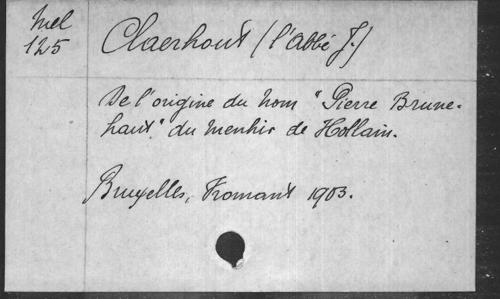 Mel
125
Claerhout (l'abbé J.)
De l'origine du nom "Pierre Brune-
haut" du menhir de Hollain.
Bruxelles, Fromant 1903.